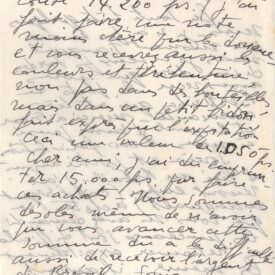 coûté 14.200 frs. J'ai
fait faire, une note
moins chère pour la douane
et vous recevrez aussi les
couleurs et
non pas dans de bouteille
mais dans un petit bidon
fait exprès pour l'exportation
ceci une valeur de 1.050 frs.
Cher ami, j'ai dû emprun
ter 15.000 frs pour faire
ces achats. Nous sommes
désolés même de n'avoir
pu vous avancer cette
somme dû à la difficulté
aussi de recevoir l'argent
du Brésil.